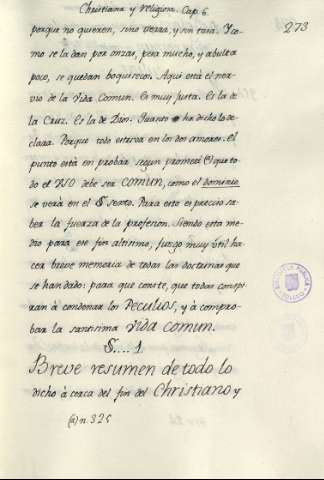 Christiano y religioso. Cap. 6.
273
porque no quieren, sino tierra, y sin tara. Y co-
mo se la dan por onzas, pesa mucho, y abulta
poco, se quedan boquisecos. Aqui està el ner-
vio de la Vida Comun. Es muy justa. Es la de
la Cruz. Es la de Dios. Quanto he dicho lo de-
clara. Porque todo estriva en los dos amores. El
punto està en probàr segun prometì (a) que to-
do el USO debe ser COMUN, como el dominio,
se verà en el §. sexto. Para esto es preciso sa-
ber la fuerza de la profesion. Siendo esta me-
dio para ese fin altisimo, juzgo muy util ha-
cer breve memoria de todas las doctrinas que
se han dado: para que conste, que todas conspi-
ran à condenar los PECULIOS, y à compro-
bar la santisima Vida comun.
§.... 1.
Breve resumen de todo lo
dicho à cerca del fin del Christiano y
(a) n. 325
BIBLIOTECA PUBLICA
TOLEDO